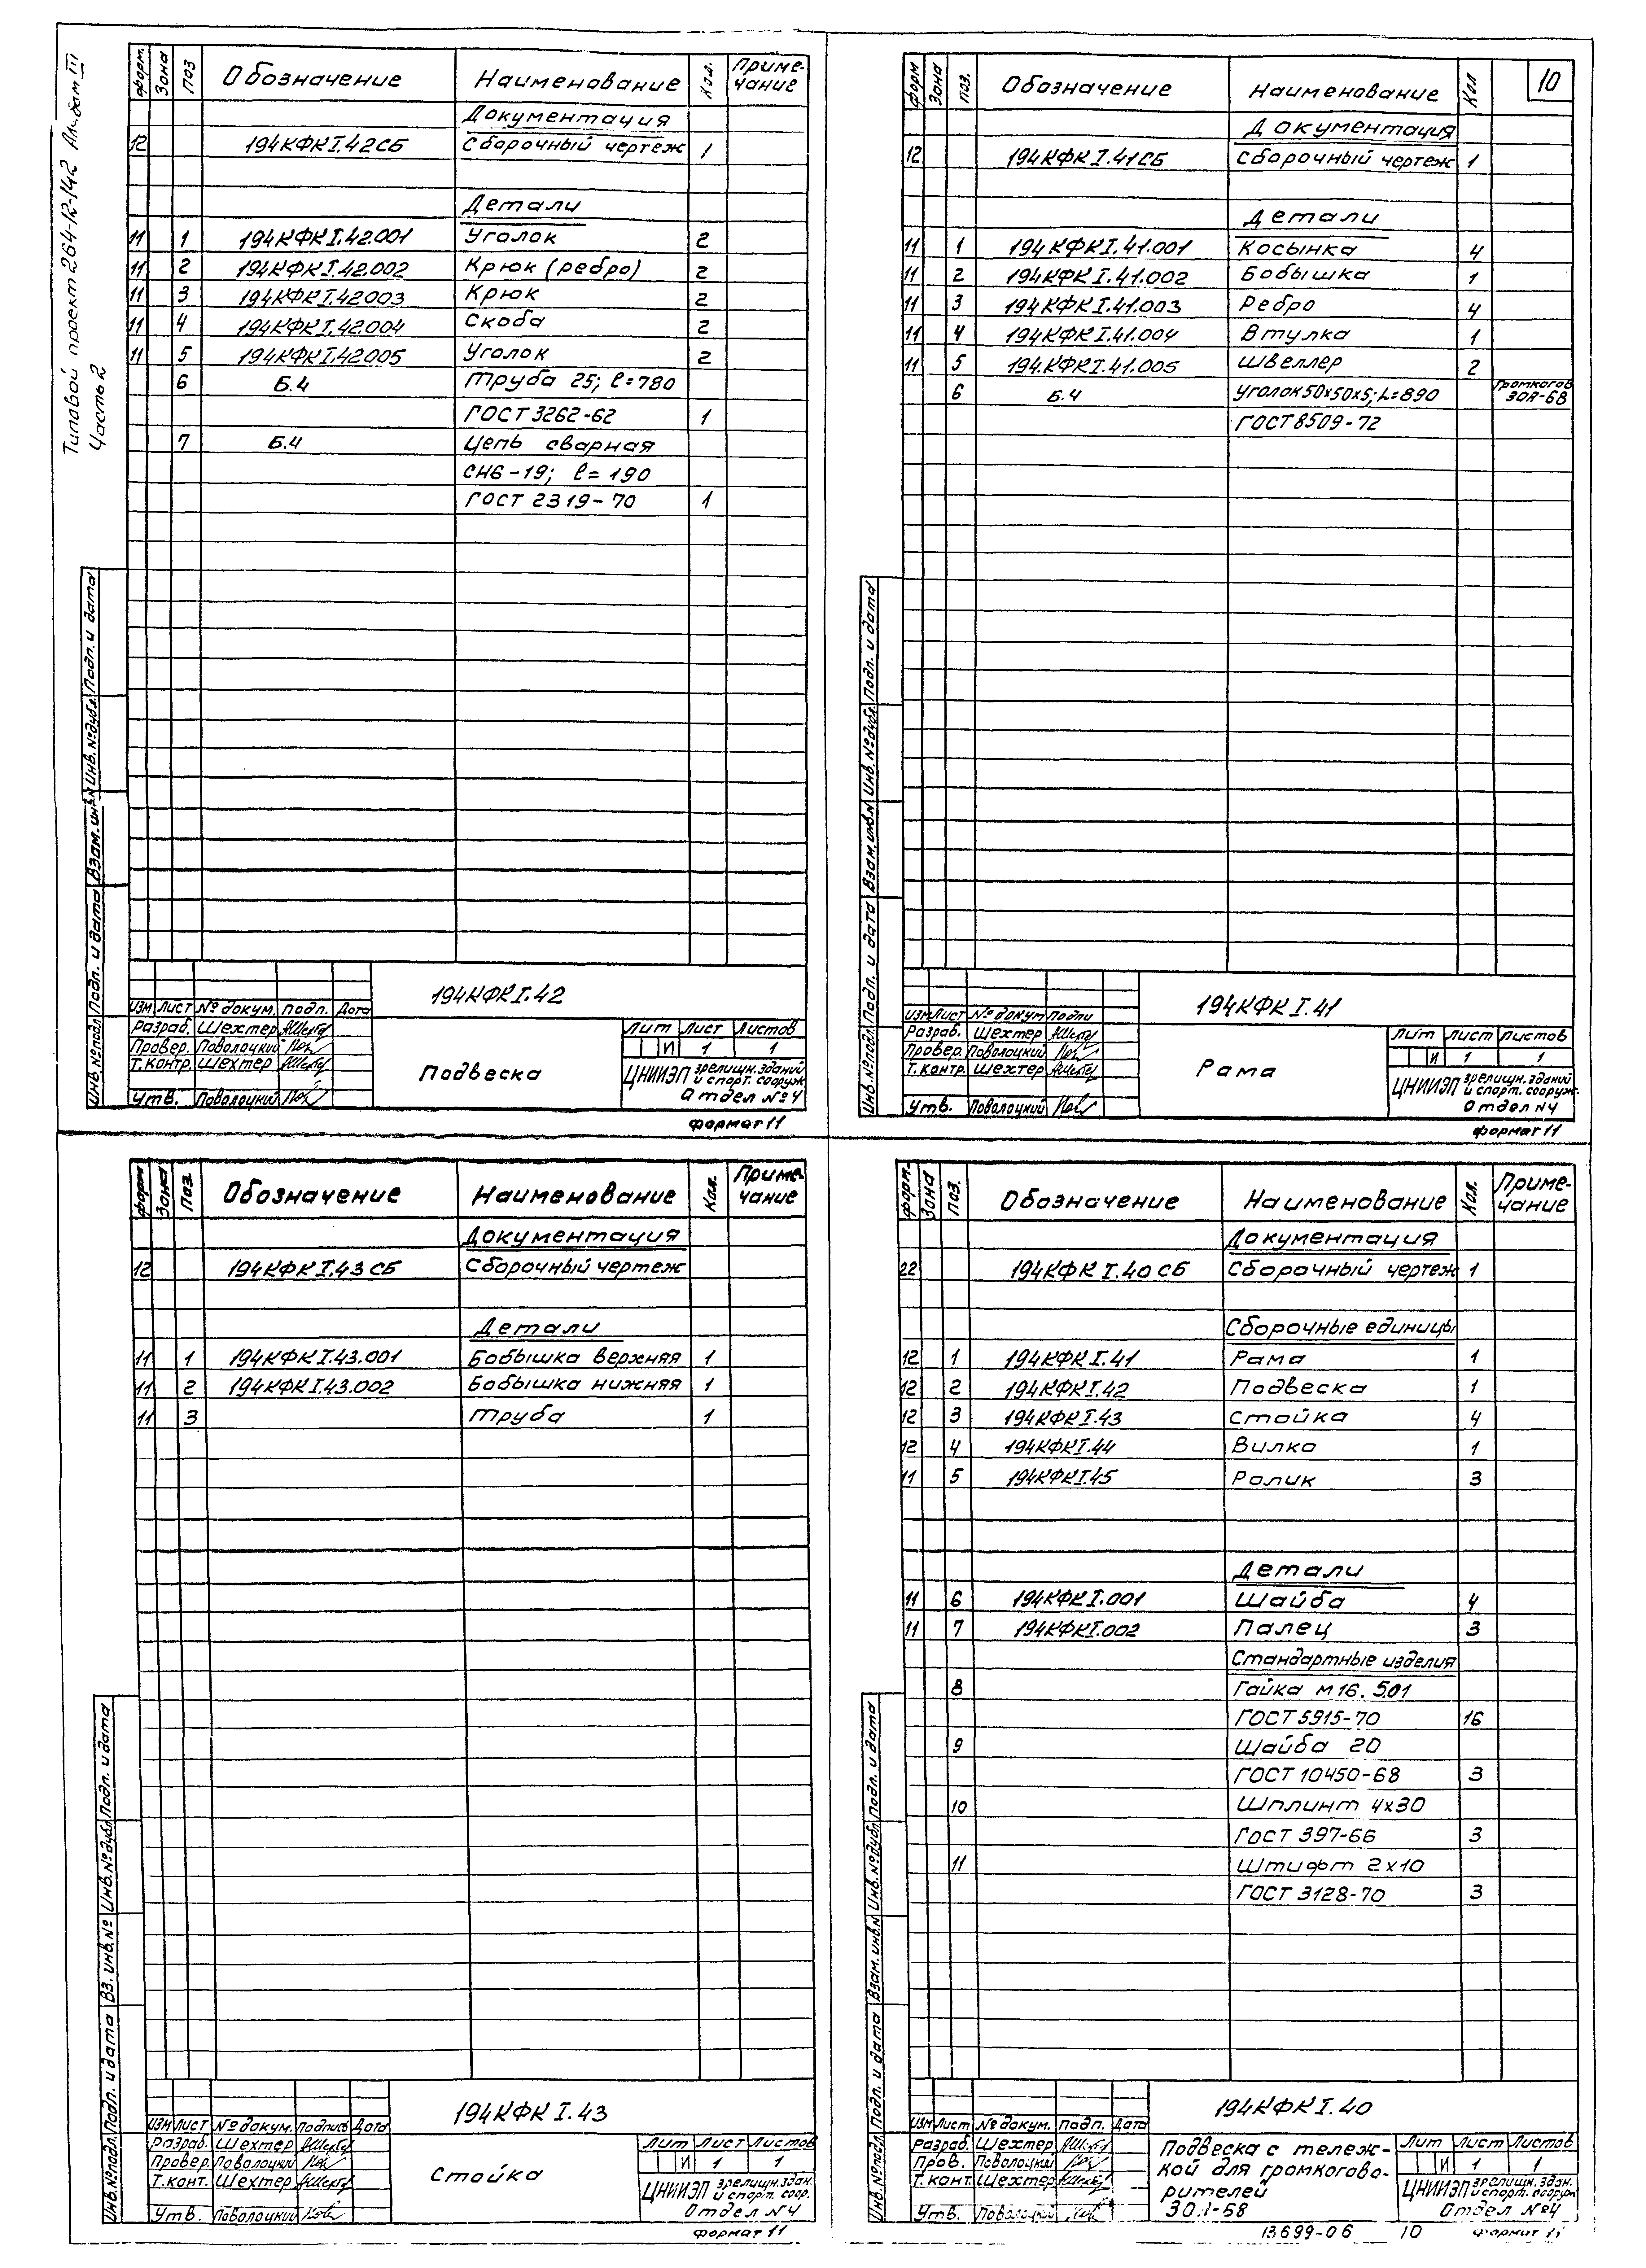 Типовой проект 264-12-142 Альбом III
Часть 2
форм. Зона Поз Обозначение Наименование Кол. Приме-
чание
Документация
12 194КФК I.42СБ Сборочный чертеж 1
Детали
11 1 194КФК I.42.001 Уголок 2
11 2 194КФК I.42.002 Крюк (ребро) 2
11 3 194КФК I.42003 Крюк 2
11 4 194КФК I.42.004 Скоба 2
11 5 194КФК I.42.005 Уголок 2
6 Б.Ч Труба 25; ℓ=780
ГОСТ 3262-62 1
7 Б.Ч Цепь сварная
СН6-19; ℓ=190
ГОСТ 2319-70 1
Инв.№подл. Подп. и дата Взам.инв.№ Инв.№дубл. Подп. и дата
194КФК I.42
Изм Лист № докум. подп. Дата
Разраб. Шехтер
Провер. Поволоцкий
Т.контр. Шехтер
Утв. Поволоцкий
Подвеска
Лит Лист Листов
И 1 1
ЦНИИЭП зрелищн.зданий
и спорт. сооруж.
Отдел №4
формат 11
форм Зона поз. Обозначение Наименование Кол 10
Документация
12 194КФК I.41СБ Сборочный чертеж 1
Детали
11 1 194КФК I.41.001 Косынка 4
11 2 194КФК I.41.002 Бобышка 1
11 3 194КФК I.41.003 Ребро 4
11 4 194КФК I.41.004 Втулка 1
11 5 194КФК I.41.005 Швеллер 2
6 Б.Ч Уголок 50х50х5; L=890
ГОСТ 8509-72
Инв.№подл. Подп. и дата Взам.инв.№ Инв.№дубл. Подп. и дата
194КФК I.41
Изм Лист № докум Подпи
Разраб. Шехтер
Провер. Поволоцкий
Т.контр. Шехтер
Утв. Поволоцкий
Рама
Лит Лист Листов
И 1 1
ЦНИИЭП зрелищн.зданий
и спорт. сооруж.
Отдел №4
формат 11
форм Зона Поз. Обозначение Наименование Кол. Приме-
чание
Документация
12 194КФК I.43 СБ Сборочный чертеж
Детали
11 1 194КФК I.43.001 Бобышка верхняя 1
11 2 194КФК I.43.002 Бобышка нижняя 1
11 3 Труба 1
Инв.№подл. Подп. и дата Вз. инв.№ Инв.№дубл Подп. и дата
194КФК I.43
Изм Лист № докум. Подпись Дата
Разраб. Шехтер
Провер. Поволоцкий
Т.конт. Шехтер
Утв. Поволоцкий
Стойка
Лит Лист Листов
И 1 1
ЦНИИЭП зрелищн.здан.
и спорт. соор.
Отдел №4
формат 11
форм. Зона поз. Обозначение Наименование Кол. Приме-
чание
Документация
22 194КФК I.40 СБ Сборочный чертеж 1
Сборочные единицы
12 1 194КФК I.41 Рама 1
12 2 194КФК I.42 Подвеска 1
12 3 194КФК I.43 Стойка 4
12 4 194КФК I.44 Вилка 1
11 5 194КФК I.45 Ролик 3
Детали
11 6 194КФК I.001 Шайба 4
11 7 194КФК I.002 Палец 3
Стандартные изделия
8 Гайка М16. 5.01
ГОСТ 5915-70 16
9 Шайба 20
ГОСТ 10450-68 3
10 Шплинт 4х30
ГОСТ 397-66 3
11 Штифт 2х10
ГОСТ 3128-70 3
Инв.№подл. Подп. и дата Взам.инв.№ Инв.№дубл Подп. и дата
194КФК I.40
Изм Лист № докум. подп. Дата
Разраб. Шехтер
Пров. Поволоцкий
Т.конт. Шехтер
Утв. Поволоцкий
Подвеска с тележ-
кой для громкогово-
рителей
30.1-68
Лит Лист Листов
И 1 1
ЦНИИЭП зрелищн.здан.
и спорт. сооруж
Отдел №4
13699-06 10 формат 11